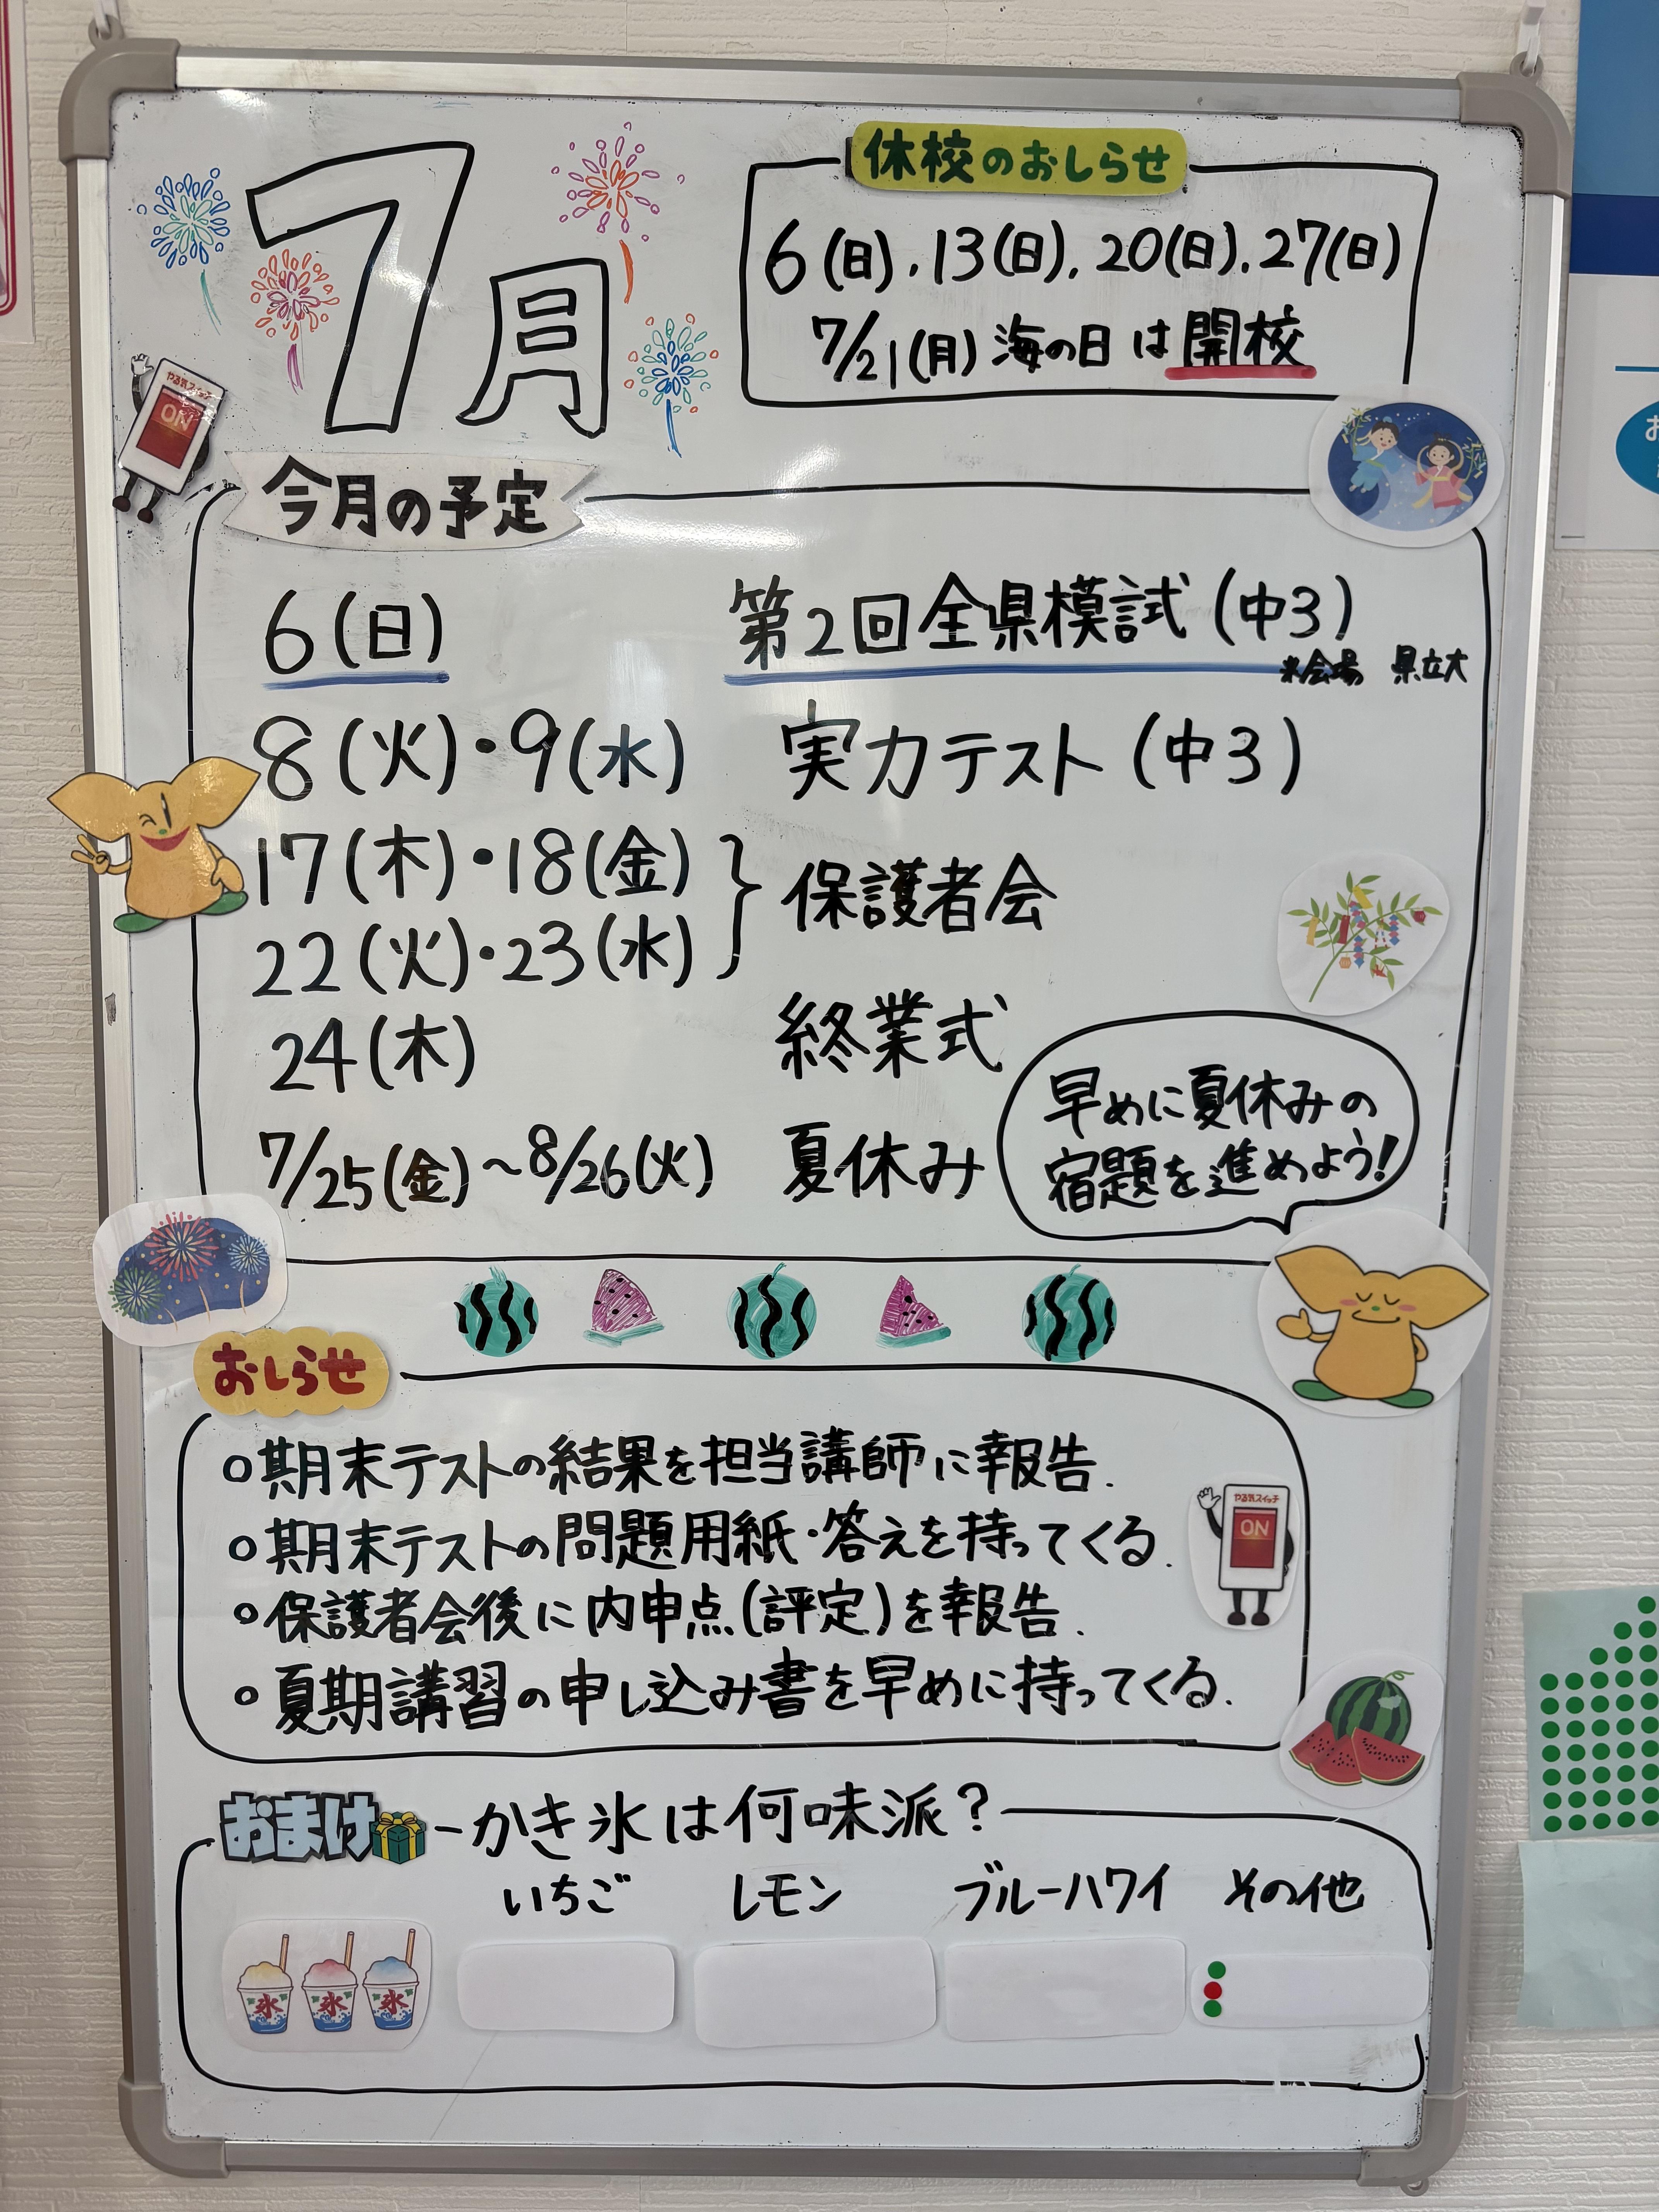 7月
休校のおしらせ
6(日).13(日).20(日).27(日)
7/21(月)海の日は開校
やる気スイッチ
ON
今月の予定
6(日) 第2回全県模試(中3)
※会場 県立大
8(火)・9(水) 実力テスト(中3)
17(木)・18(金)
22(火)・23(水) 保護者会
24(木) 終業式
7/25(金)~8/26(火) 夏休み
早めに夏休みの
宿題を進めよう!
おしらせ
○期末テストの結果を担当講師に報告.
○期末テストの問題用紙・答えを持ってくる.
○保護者会後に内申点(評定)を報告.
○夏期講習の申し込み書を早めに持ってくる.
やる気スイッチ
ON
おまけ
かき氷は何味派?
いちご レモン ブルーハワイ その他
氷 氷 氷